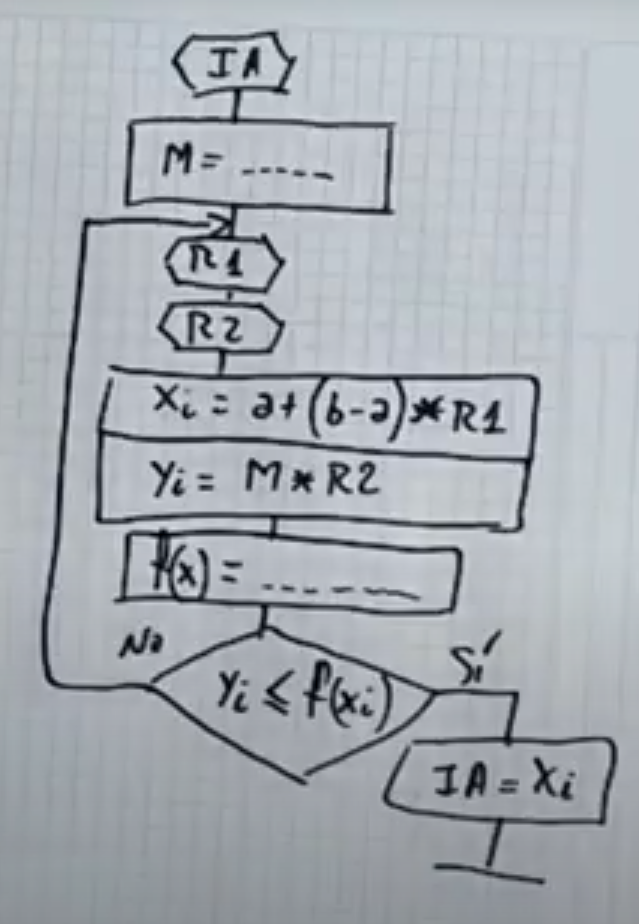 IA
M = -----
R1
R2
Xi = a+(b-a)*R1
Yi = M*R2
f(x) = -------
No
Yi ≤ f(xi)
Sí
IA = Xi